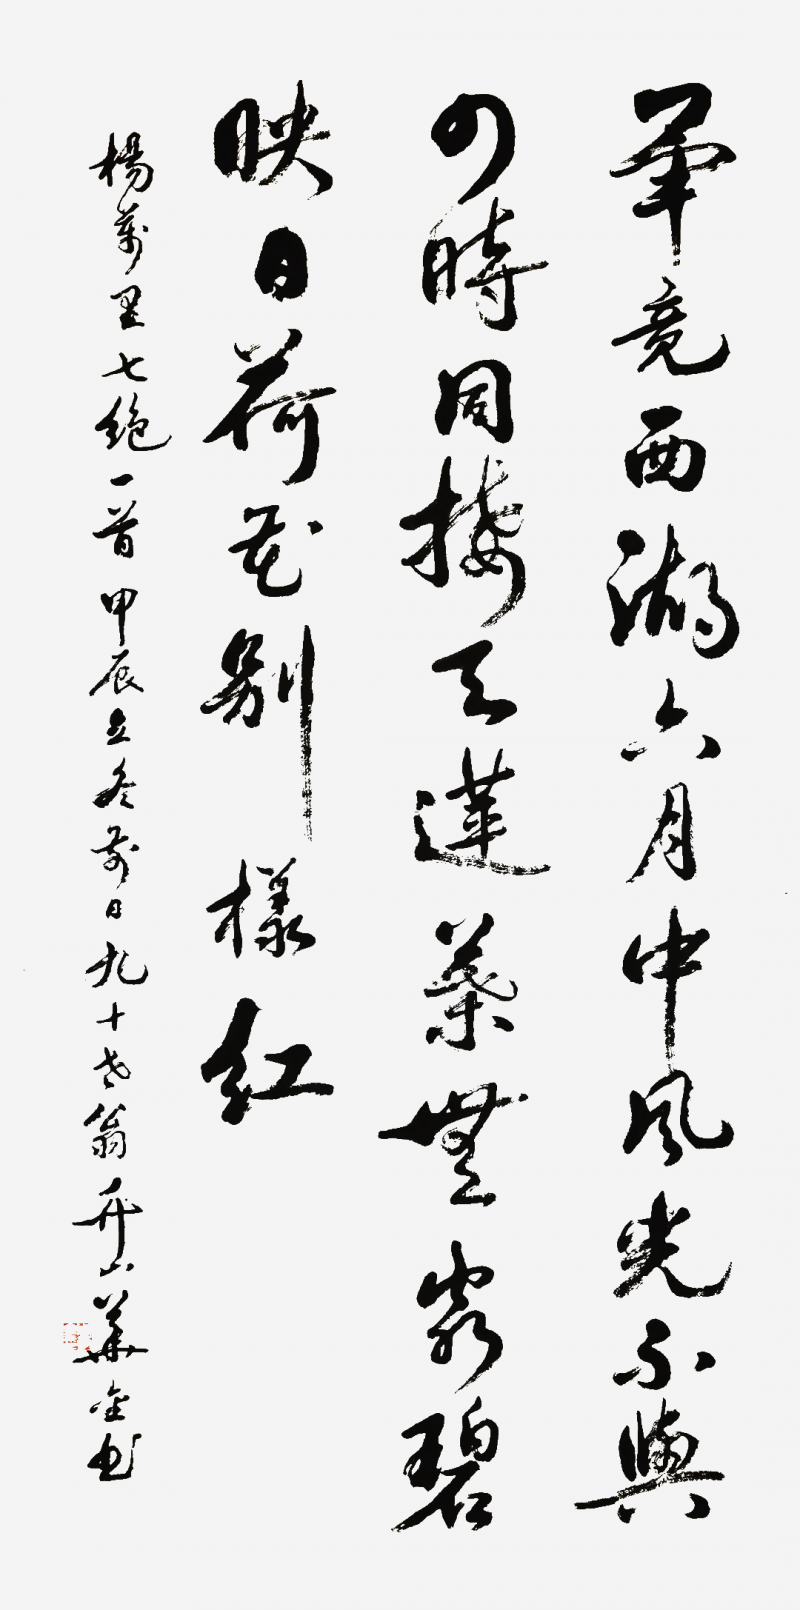 畢竟西湖六月中風光不與
四時同接天蓮葉無窮碧
映日荷花別樣紅
楊萬里七絕一首甲辰立冬前日九十老翁山華金书